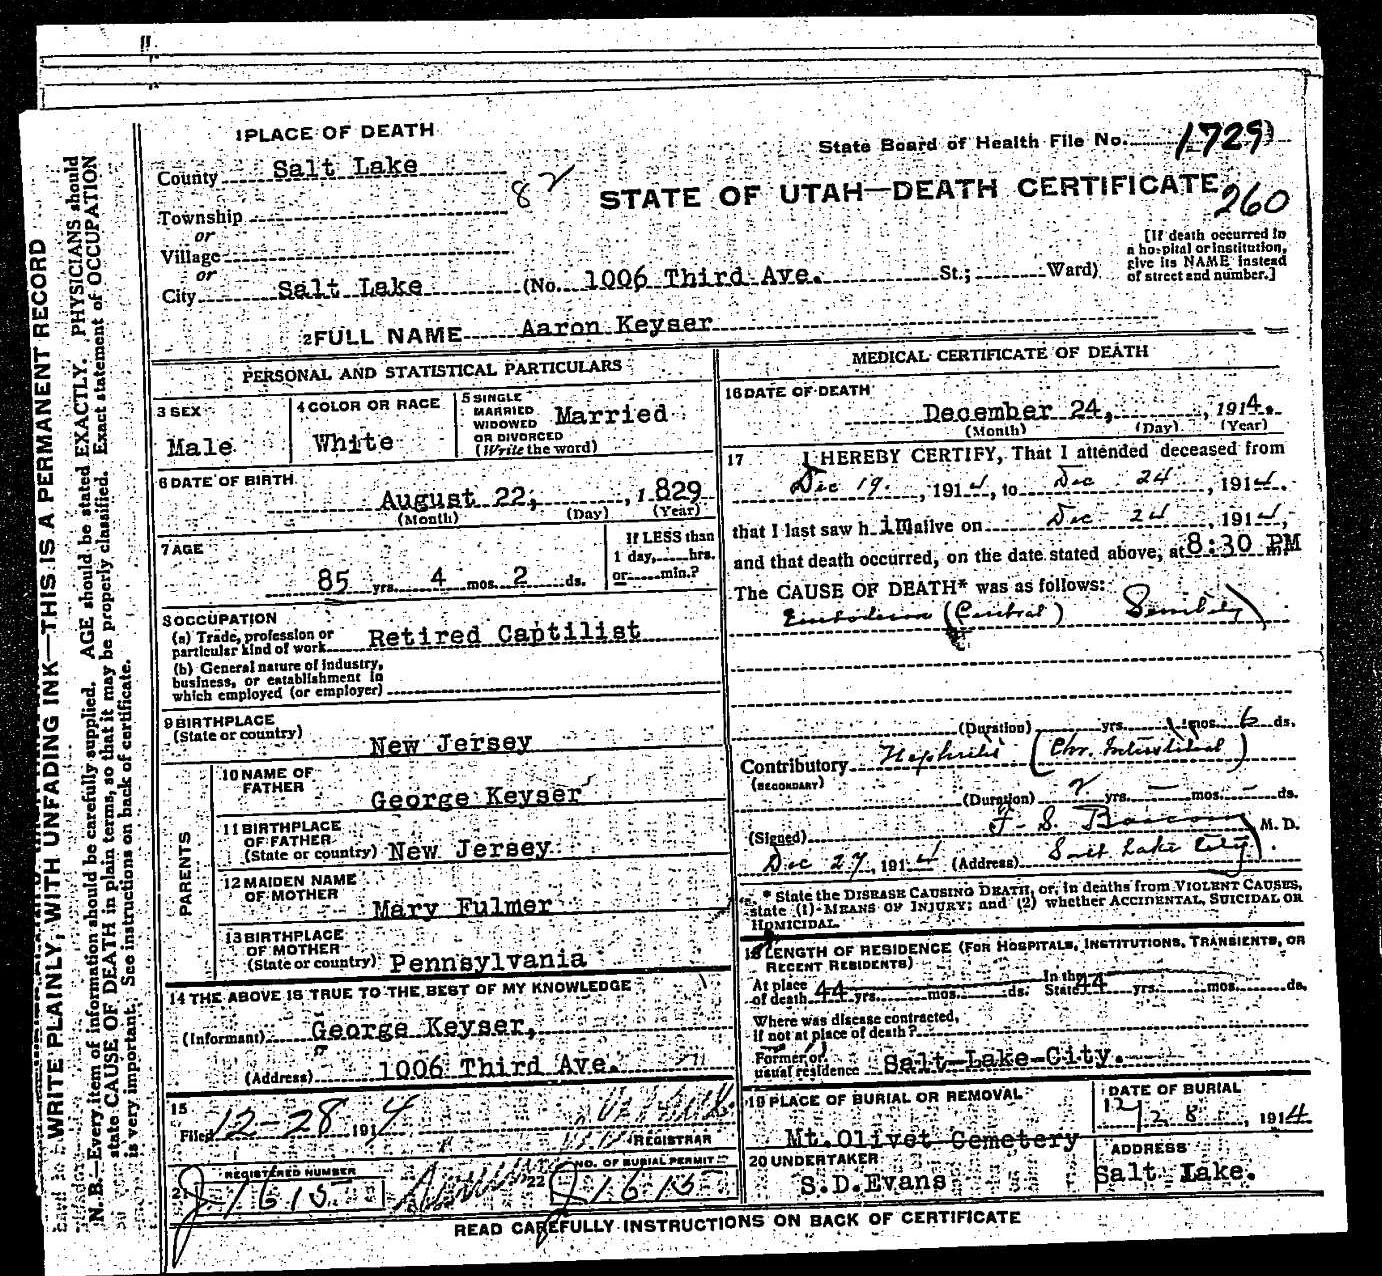 1 PLACE OF DEATH
State Board of Health File No. 1729
County Salt Lake
82
STATE OF UTAH—DEATH CERTIFICATE
260
Township
or
Village
or
City Salt Lake (No. 1006 Third Ave. St.; Ward)
[If death occurred in
a hospital or institution,
give its NAME instead
of street and number.]
2 FULL NAME Aaron Keyser
PERSONAL AND STATISTICAL PARTICULARS
3 SEX
Male
4 COLOR OR RACE
White
5 SINGLE
MARRIED
WIDOWED
OR DIVORCED
(Write the word)
Married
6 DATE OF BIRTH
August 22, , 1829
(Month) (Day) (Year)
7 AGE
85 yrs. 4 mos. 2 ds.
If LESS than
1 day, hrs.
or min.?
8 OCCUPATION
(a) Trade, profession or
particular kind of work Retired Captilist
(b) General nature of industry,
business, or establishment in
which employed (or employer)
9 BIRTHPLACE
(State or country)
New Jersey
PARENTS
10 NAME OF
FATHER
George Keyser
11 BIRTHPLACE
OF FATHER
(State or country) New Jersey
12 MAIDEN NAME
OF MOTHER
Mary Fulmer
13 BIRTHPLACE
OF MOTHER
(State or country) Pennsylvania
14 THE ABOVE IS TRUE TO THE BEST OF MY KNOWLEDGE
(Informant) George Keyser,
(Address) 1006 Third Ave.
15
Filed 12-28 1914
REGISTRAR
REGISTERED NUMBER
21 J1615
NO. OF BURIAL PERMIT
22 J1615
MEDICAL CERTIFICATE OF DEATH
16 DATE OF DEATH
December 24, , 1914.
(Month) (Day) (Year)
17 I HEREBY CERTIFY, That I attended deceased from
Dec 19. , 1914, to Dec 24 , 1914.
that I last saw h im alive on Dec 24 , 1914,
and that death occurred, on the date stated above, at 8:30 PM m.
The CAUSE OF DEATH* was as follows:
(Duration) yrs. mos. 6 ds.
Contributory Nephritis (Chr. Interstitial)
(SECONDARY)
(Duration) 2 yrs. — mos. — ds.
(Signed) F. S. Bascom M. D.
Dec 27, 1914 (Address) Salt Lake City.
* State the DISEASE CAUSING DEATH, or, in deaths from VIOLENT CAUSES,
state (1) MEANS OF INJURY; and (2) whether ACCIDENTAL, SUICIDAL OR
HOMICIDAL.
18 LENGTH OF RESIDENCE (FOR HOSPITALS, INSTITUTIONS, TRANSIENTS, OR
RECENT RESIDENTS)
At place
of death 44 yrs. mos. ds.
In the
State 44 yrs. mos. ds.
Where was disease contracted,
if not at place of death?
Former or
usual residence Salt Lake City.
19 PLACE OF BURIAL OR REMOVAL
Mt. Olivet Cemetery
DATE OF BURIAL
12/28 , 1914
20 UNDERTAKER
S.D.Evans
ADDRESS
Salt Lake.
READ CAREFULLY INSTRUCTIONS ON BACK OF CERTIFICATE
WRITE PLAINLY, WITH UNFADING INK—THIS IS A PERMANENT RECORD
N. B.—Every item of information should be carefully supplied. AGE should be stated EXACTLY. PHYSICIANS should
state CAUSE OF DEATH in plain terms, so that it may be properly classified. Exact statement of OCCUPATION
is very important. See instructions on back of certificate.